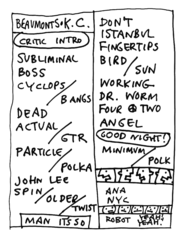 BEAUMONTS • K.C.
CRITIC INTRO
SUBLIMINAL
BOSS
CYCLOPS/
BANGS
DEAD
ACTUAL/
GTR
PARTICLE/
POLKA
JOHN LEE
SPIN/
OLDER/
TWIST
MAN ITS SO
DON'T
ISTANBUL
FINGERTIPS
BIRD/
SUN
WORKING
DR. WORM
FOUR OF TWO
ANGEL
GOOD NIGHT!
MINIMUM/
POLK
ANA
NYC
ROBOT YEAH! YEAH!